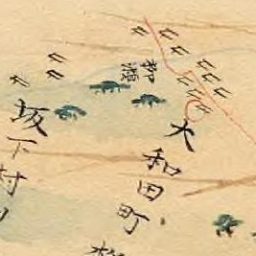 柳瀬
大和田町
坂下村